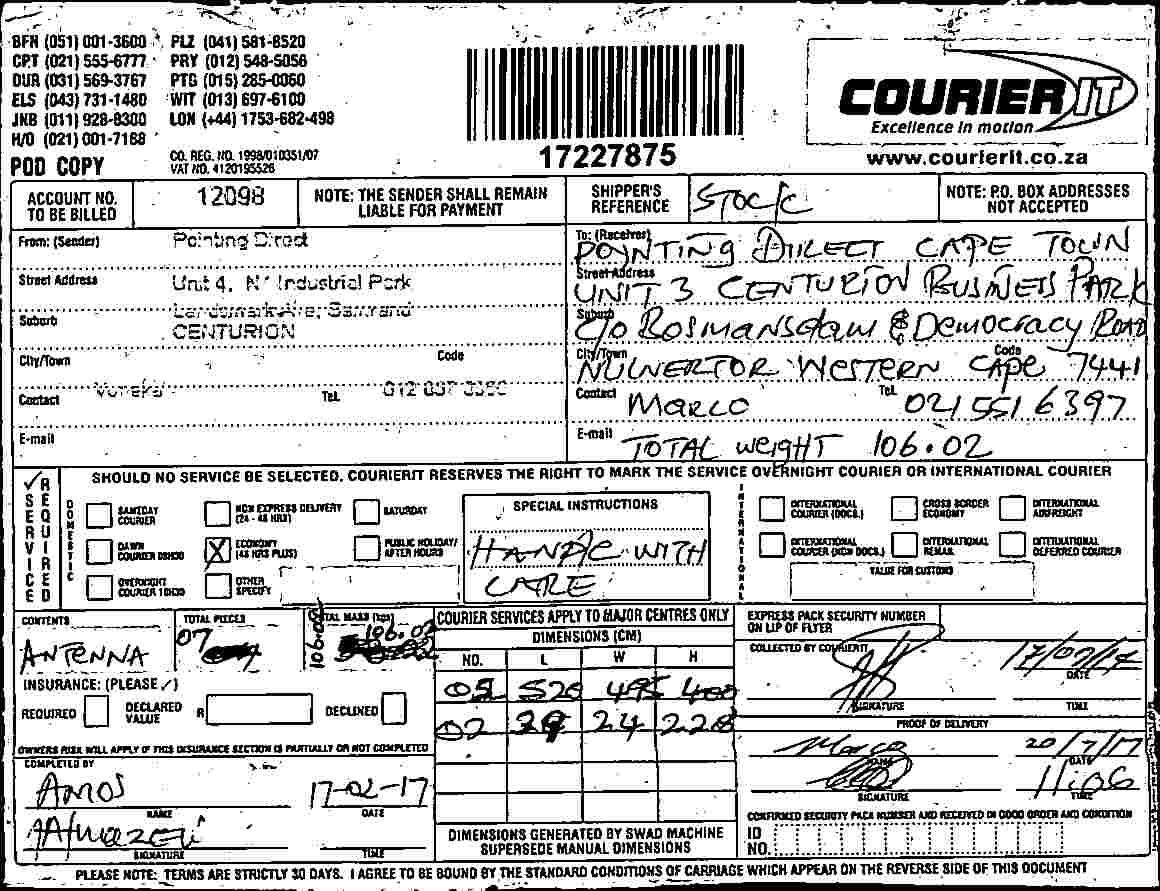 BFN (051) 001-3600 PLZ (041) 581-8520
CPT (021) 555-6777 PRY (012) 548-5056
DUR (031) 569-3767 PTG (015) 285-0060
ELS (043) 731-1480 WIT (013) 697-6100
JNB (011) 928-8300 LON (+44) 1753-682-498
H/O (021) 001-7188
POD COPY
CO. REG. NO. 1998/010351/07
VAT NO. 4120195526
17227875
COURIER IT
Excellence in motion
www.courierit.co.za
ACCOUNT NO. TO BE BILLED
12098
NOTE: THE SENDER SHALL REMAIN LIABLE FOR PAYMENT
SHIPPER'S REFERENCE
STOCK
NOTE: P.O. BOX ADDRESSES NOT ACCEPTED
From: (Sender) Pointing Direct
Street Address Unit 4, N1 Industrial Park
Suburb
CENTURION
City/Town Code
Contact Tel. 012
E-mail
To: (Receiver) POYNTING DIRECT CAPE TOWN
Street Address UNIT 3 CENTURION BUSINESS PARK
Suburb C/O BOSMANSDAM & DEMOCRACY ROAD
City/Town WESTERN CAPE Code 7441
Contact MARCO Tel. 021 551 6397
E-mail TOTAL WEIGHT 106.02
SERVICE REQUIRED
SHOULD NO SERVICE BE SELECTED, COURIERIT RESERVES THE RIGHT TO MARK THE SERVICE OVERNIGHT COURIER OR INTERNATIONAL COURIER
DOMESTIC
SAMEDAY COURIER
NDX EXPRESS DELIVERY (24 - 48 HRS)
SATURDAY
DAWN COURIER 08H30
ECONOMY (48 HRS PLUS)
PUBLIC HOLIDAY/ AFTER HOURS
OVERNIGHT COURIER 10H30
OTHER SPECIFY
SPECIAL INSTRUCTIONS
HANDLE WITH
CARE
INTERNATIONAL
INTERNATIONAL COURIER (DOCS.)
CROSS BORDER ECONOMY
INTERNATIONAL AIRFREIGHT
INTERNATIONAL COURIER (NON DOCS.)
INTERNATIONAL REMAIL
INTERNATIONAL DEFERRED COURIER
VALUE FOR CUSTOMS
CONTENTS
ANTENNA
TOTAL PIECES
07
TOTAL MASS (kgs)
106.02
106.02
INSURANCE: (PLEASE ✓)
REQUIRED DECLARED VALUE R DECLINED
OWNERS RISK WILL APPLY IF THIS INSURANCE SECTION IS PARTIALLY OR NOT COMPLETED
COMPLETED BY
AMOS 17-02-17
NAME DATE
SIGNATURE TIME
COURIER SERVICES APPLY TO MAJOR CENTRES ONLY
DIMENSIONS (CM)
NO. L W H
05 520 495 400
02 39 24 228
DIMENSIONS GENERATED BY SWAD MACHINE SUPERSEDE MANUAL DIMENSIONS
EXPRESS PACK SECURITY NUMBER ON LIP OF FLYER
COLLECTED BY COURIERIT
17/07/17
DATE
SIGNATURE TIME
PROOF OF DELIVERY
Marco 20/7/17
NAME DATE
11:06
SIGNATURE TIME
CONFIRMED SECURITY PACK NUMBER AND RECEIVED IN GOOD ORDER AND CONDITION
ID NO.
PLEASE NOTE: TERMS ARE STRICTLY 30 DAYS. I AGREE TO BE BOUND BY THE STANDARD CONDITIONS OF CARRIAGE WHICH APPEAR ON THE REVERSE SIDE OF THIS DOCUMENT